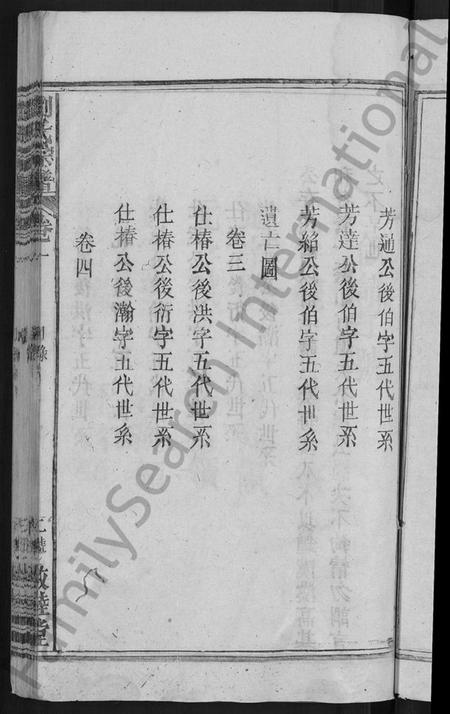 芳通公後伯字五代世系
芳達公後伯字五代世系
芳紹公後伯字五代世系
遺亡圖
卷三
仕椿公後洪字五代世系
仕椿公後衍字五代世系
仕椿公後瀚字五代世系
卷四
劉氏宗譜
卷一
目錄
敦睦堂
FamilySearch International